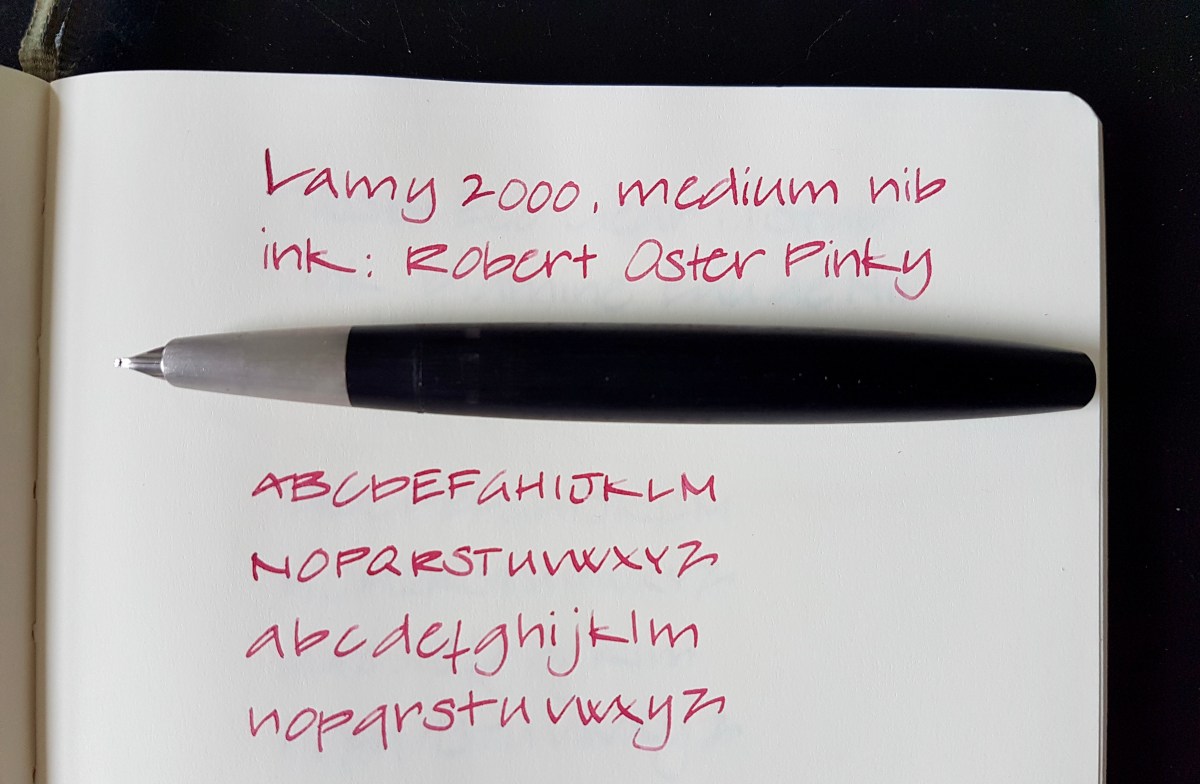 Lamy 2000, medium nib
ink: Robert Oster Pinky
ABCDEFGHIJKLM
NOPQRSTUVWXYZ
abcdefghijklm
nopqrstuvwxyz